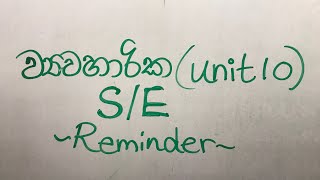 ව්‍යවහාරික (unit 10)
S/E
~Reminder~